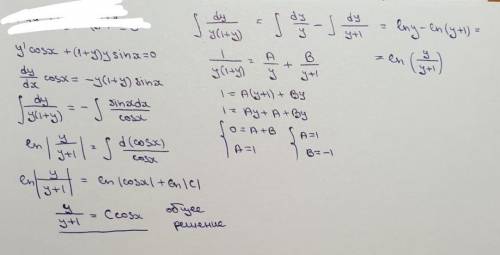 y' cosx + (1+y) y sinx = 0
dy/dx cosx = -y(1+y) sinx
∫ dy/y(1+y) = - ∫ sinxdx/cosx
ln|y/y+1| = ∫ d(cosx)/cosx
ln|y/y+1| = ln|cosx| + ln|C|
y/y+1 = C cosx общее решение
∫ dy/y(1+y) = ∫ dy/y - ∫ dy/y+1 = lny - ln(y+1) =
= ln (y/y+1)
1/y(1+y) = A/y + B/y+1
1 = A(y+1) + By
1 = Ay + A + By
{ 0 = A+B { A=1
A=1 B=-1